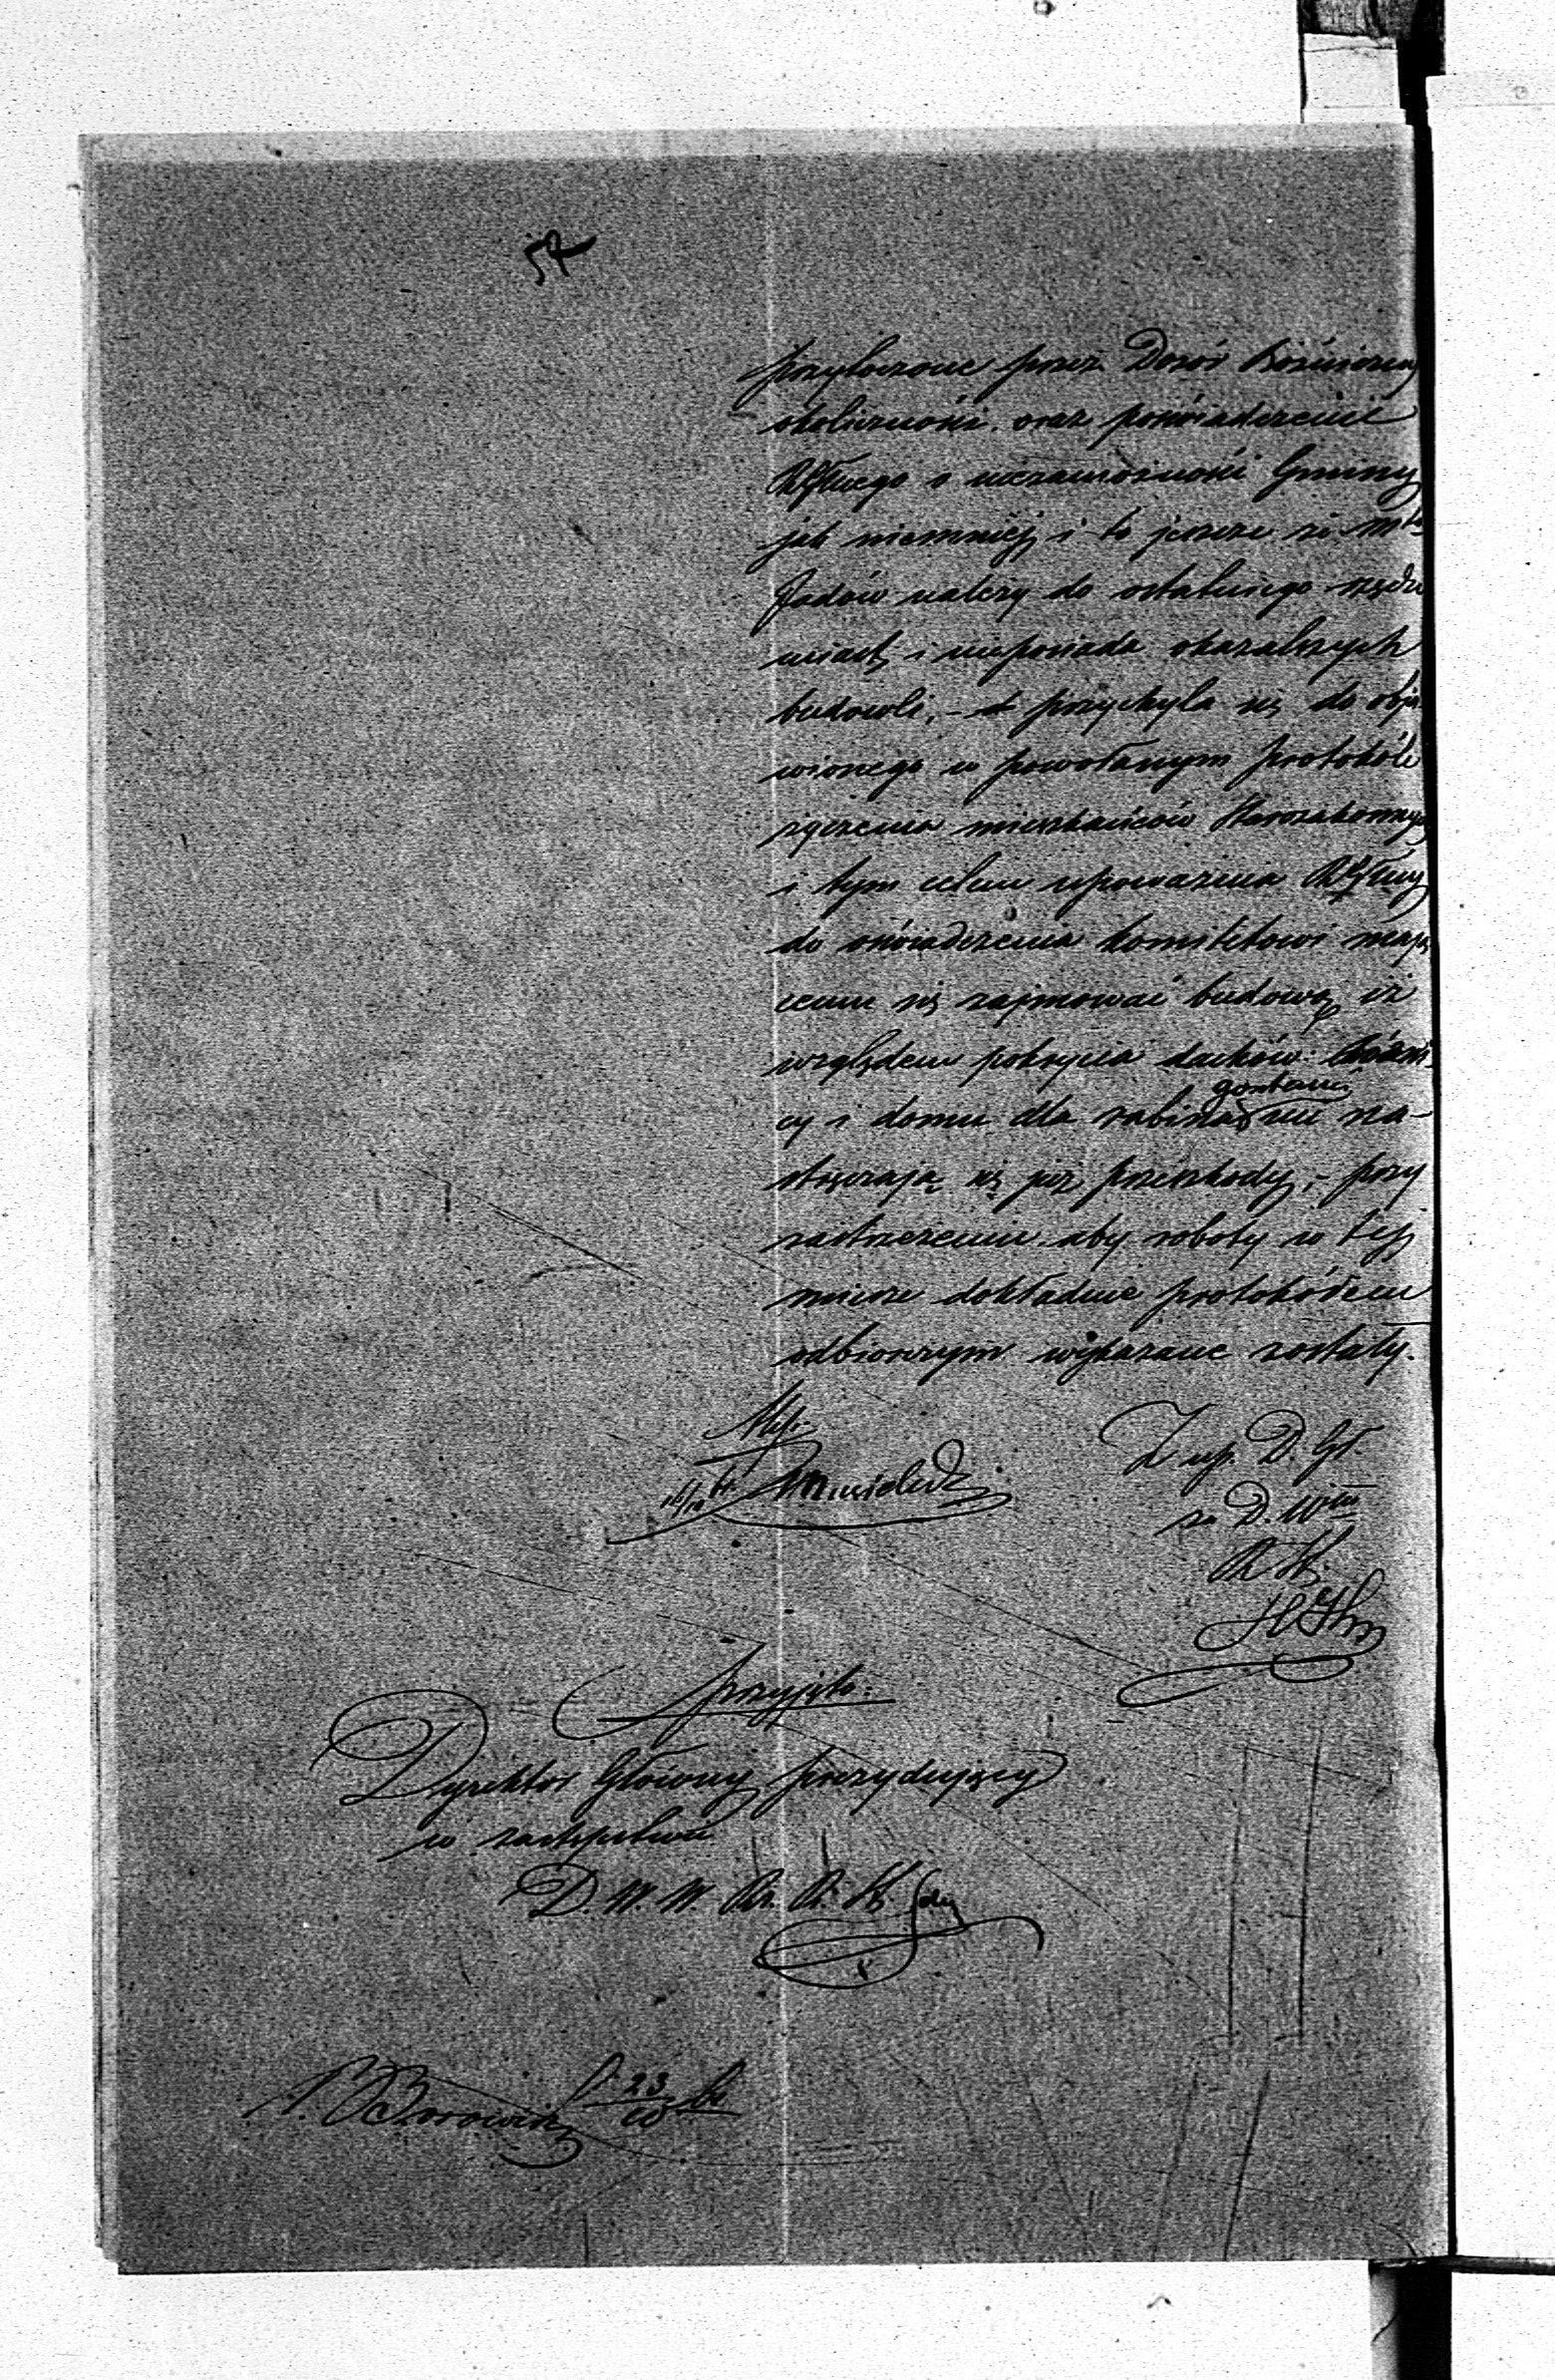 57
przytoczone przez Dozór Bożniczny
okoliczności oraz poświadczenie
RGłnego o niezamożności Gminy
jak niemniej i to jeszcze że Mto
Jadów należy do ostatniego rzędu
miast, i nieposiada okazalszych
budowli, – przychyla się do obja
wionego w powołanym protokóle
życzenia mieszkańców Starozakonnych
i tym celem upoważnia RGłny
do oświadczenia komitetowi mają
cemu się zajmować budową iż
względem pokrycia dachów Bóżni
cy i domu dla rabina gontami nie na-
stręczają się już przeszkody, – przy
zastrzeżeniu aby roboty w tej
mierze dokładnie protokółem
odbiorczym wykazane zostały.
Z up. D. Gł.
za D. Wni
R. St.
przyjęto.
Dyrektor Główny prezydujący
w zastępstwie
D. W. W. Rz. R. St.
Borowski 23/10